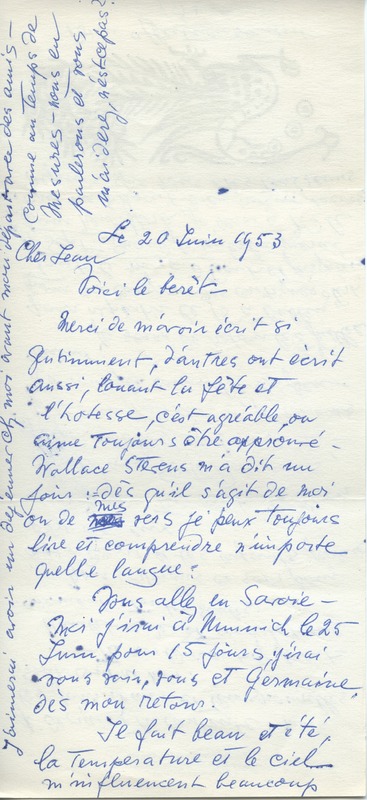 Le 20 Juin 1953
Cher Jean
Voici le berêt -
Merci de m'avoir écrit si
gentimment, d'autres ont écrit
aussi, louant la fête et
l'hôtesse, c'est agréable, on
aime toujours être approuvé -
Wallace Stevens m'a dit un
jour : - dès qu'il s'agit de moi
ou de mes vers je peux toujours
lire et comprendre n'importe
quelle langue :
Vous allez en Savoie -
Moi j'irai à Munich le 25
Juin pour 15 jours, j'irai
vous voir, vous et Germaine,
dès mon retour.
Il fait beau et été,
la température et le ciel
m'influencent beaucoup
J'aimerai avoir un déjeuner chez moi avant mon départ avec des amis -
Comme au temps de
Mesures - nous en
parlerons et vous
m'aiderez, n'est-ce pas ?